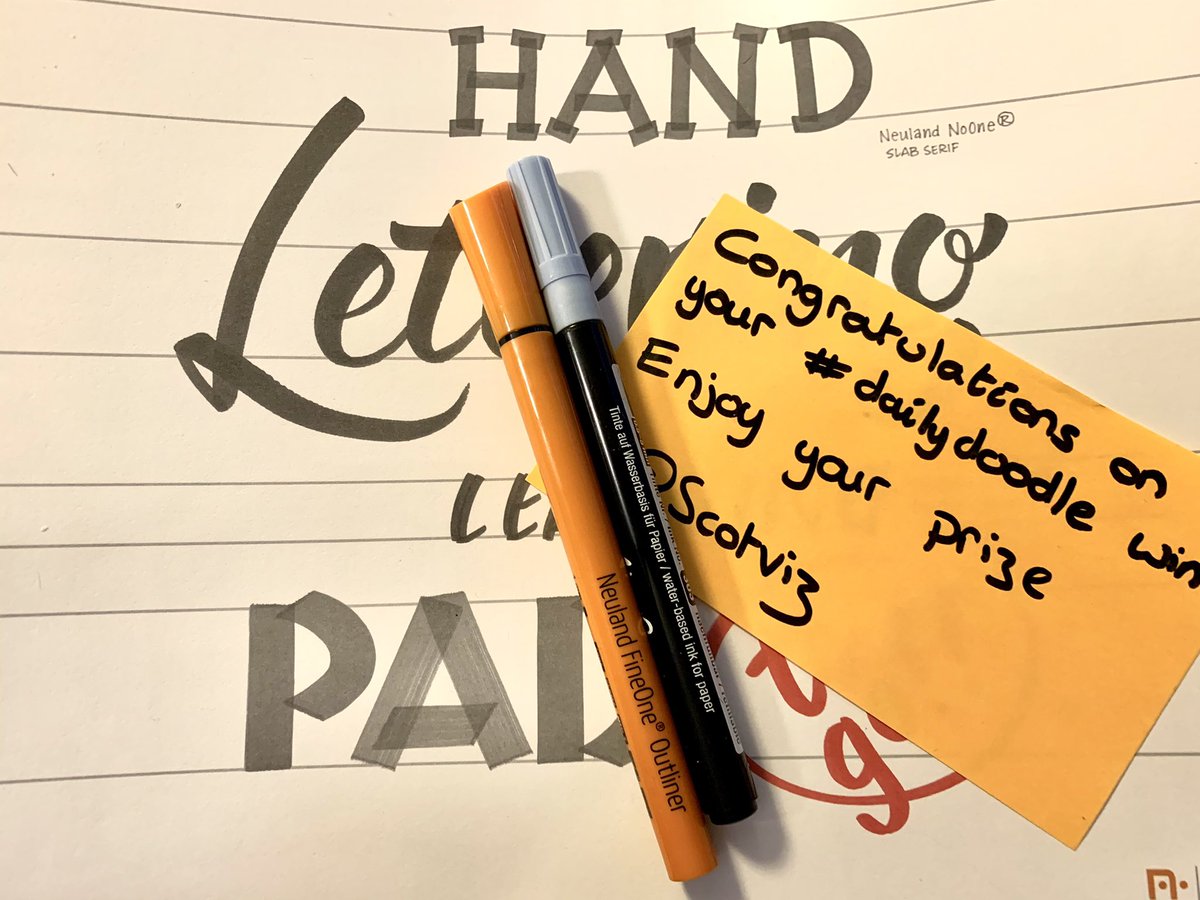 HAND
Neuland NoOne®
SLAB SERIF
Congratulations on
your #dailydoodle win
Enjoy your prize
Scotviz
Tinte auf Wasserbasis für Papier / water-based ink for paper
Neuland FineOne® Outliner